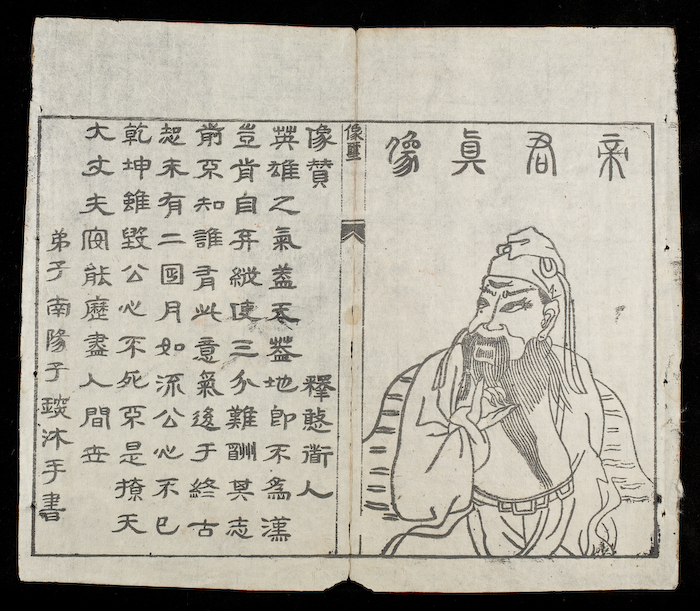 帝君眞像
像
像贊 釋憨衜人
英雄之氣蓋天蓋地即不爲漢
豈肯自弃縱使三分難酬其志
前不知誰有此意氣後于終古
恐未有二日月如流公心不已
乾坤雖毀公心不死不是撩天
大丈夫安能歷盡人間世
弟子南陽子沐手書